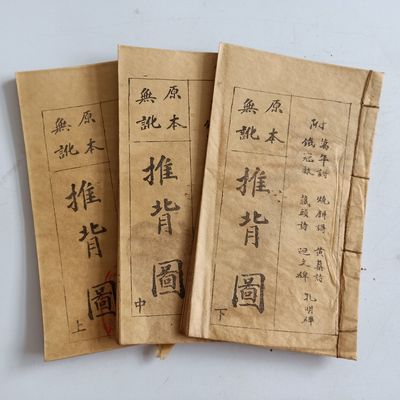 原本
無訛
推背圖
上
原本
無訛
推背圖
中
附
萬年詩 燒餅詩 黃蘗詩
鐵冠數 藏頭詩 碑 孔明碑
原本
無訛
推背圖
下